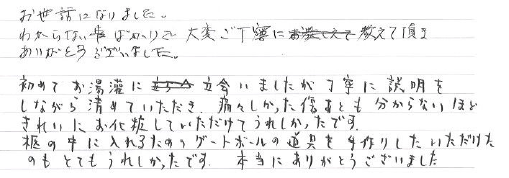 お世話になりました。
わからない事ばかりで 大変ご丁寧に 教えて頂き
ありがとうございました。
初めてお湯灌に 立会いましたが丁寧に説明を
しながら清めていただき、痛々しかった傷あとも分からないほど
きれいにお化粧していただけてうれしかったです。
棺の中に入れるためのゲートボールの道具を手作りしていただけた
のもとてもうれしかったです。 本当にありがとうございました